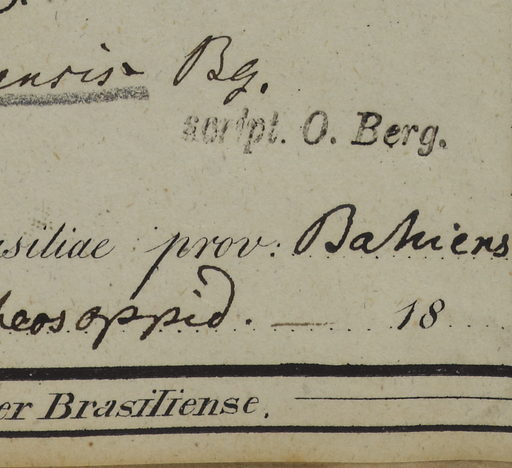 ensis Bg.
script. O. Berg.
asiliae prov: Bahiens
heos oppid. — 18
er Brasiliense.